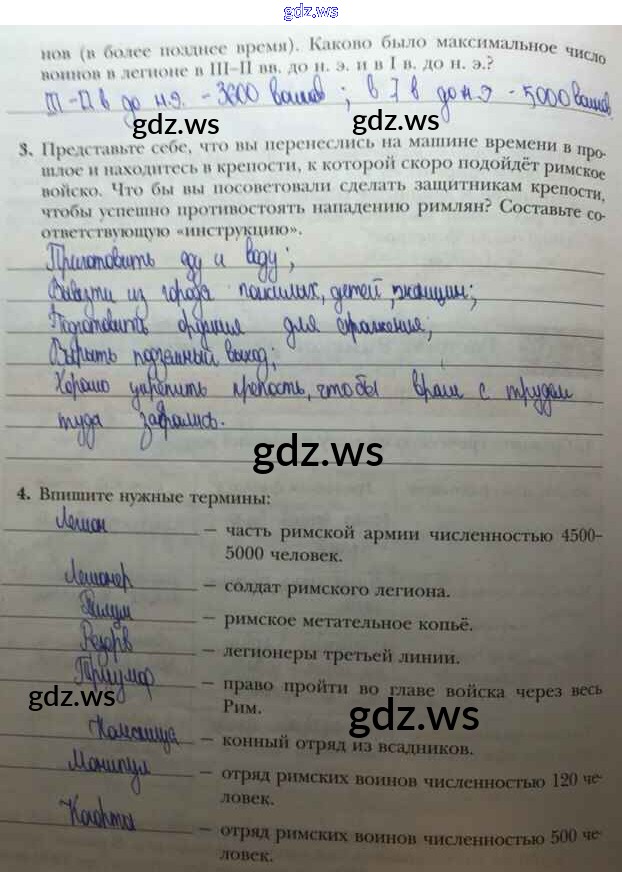 gdz.ws
нов (в более позднее время). Каково было максимальное число
воинов в легионе в III–II вв. до н. э. и в I в. до н. э.?
III – II в до н.э. - 3600 воинов ; в I в до н.э - 5000 воинов.
gdz.ws gdz.ws
3. Представьте себе, что вы перенеслись на машине времени в про-
шлое и находитесь в крепости, к которой скоро подойдёт римское
войско. Что бы вы посоветовали сделать защитникам крепости,
чтобы успешно противостоять нападению римлян? Составьте со-
ответствующую «инструкцию».
Приготовить еду и воду;
Вывезти из города пожилых, детей, женщин;
Подготовить орудия для сражения;
Вырыть подземный выход;
Хорошо укрепить крепость, чтобы враги с трудом
туда забрались.
gdz.ws
4. Впишите нужные термины:
Легион — часть римской армии численностью 4500–
5000 человек.
Легионер — солдат римского легиона.
Пилум — римское метательное копьё.
Резерв — легионеры третьей линии.
Триумф — право пройти во главе войска через весь
Рим.
gdz.ws gdz.ws
Конница — конный отряд из всадников.
Манипул — отряд римских воинов численностью 120 че-
ловек.
Когорта — отряд римских воинов численностью 500 че-
ловек.